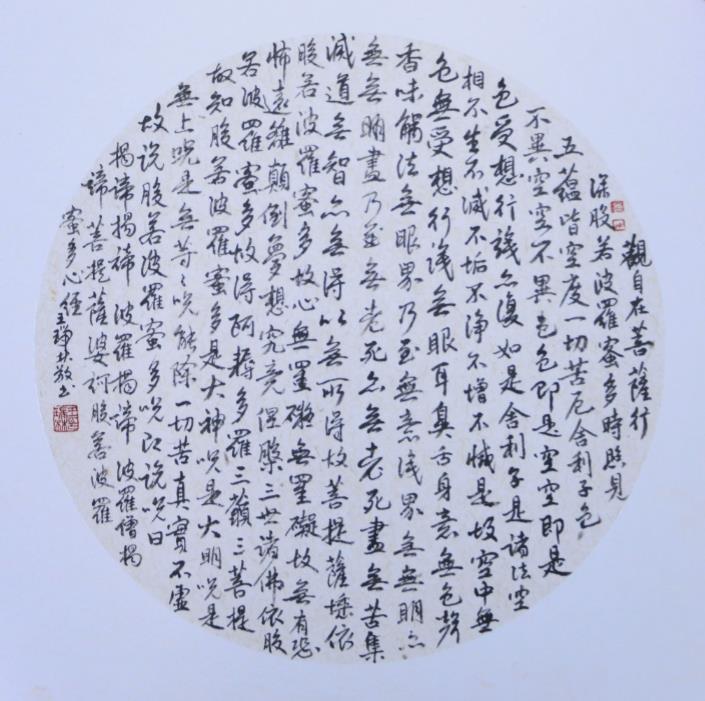 觀自在菩薩行
深般若波羅蜜多時照見
五蘊皆空度一切苦厄舍利子色
不異空空不異色色即是空空即是
色受想行識亦復如是舍利子是諸法空
相不生不滅不垢不淨不增不減是故空中無
色無受想行識無眼耳鼻舌身意無色聲
香味觸法無眼界乃至無意識界無無明亦
無無明盡乃至無老死亦無老死盡無苦集
滅道無智亦無得以無所得故菩提薩埵依
般若波羅蜜多故心無罣礙無罣礙故無有恐
怖遠離顛倒夢想究竟涅槃三世諸佛依般
若波羅蜜多故得阿耨多羅三藐三菩提
故知般若波羅蜜多是大神咒是大明咒是
無上咒是無等々咒能除一切苦真實不虛
故說般若波羅蜜多咒即說咒曰
揭諦揭諦波羅揭諦波羅僧揭
諦菩提薩婆訶般若波羅
蜜多心經王瑞林敬書